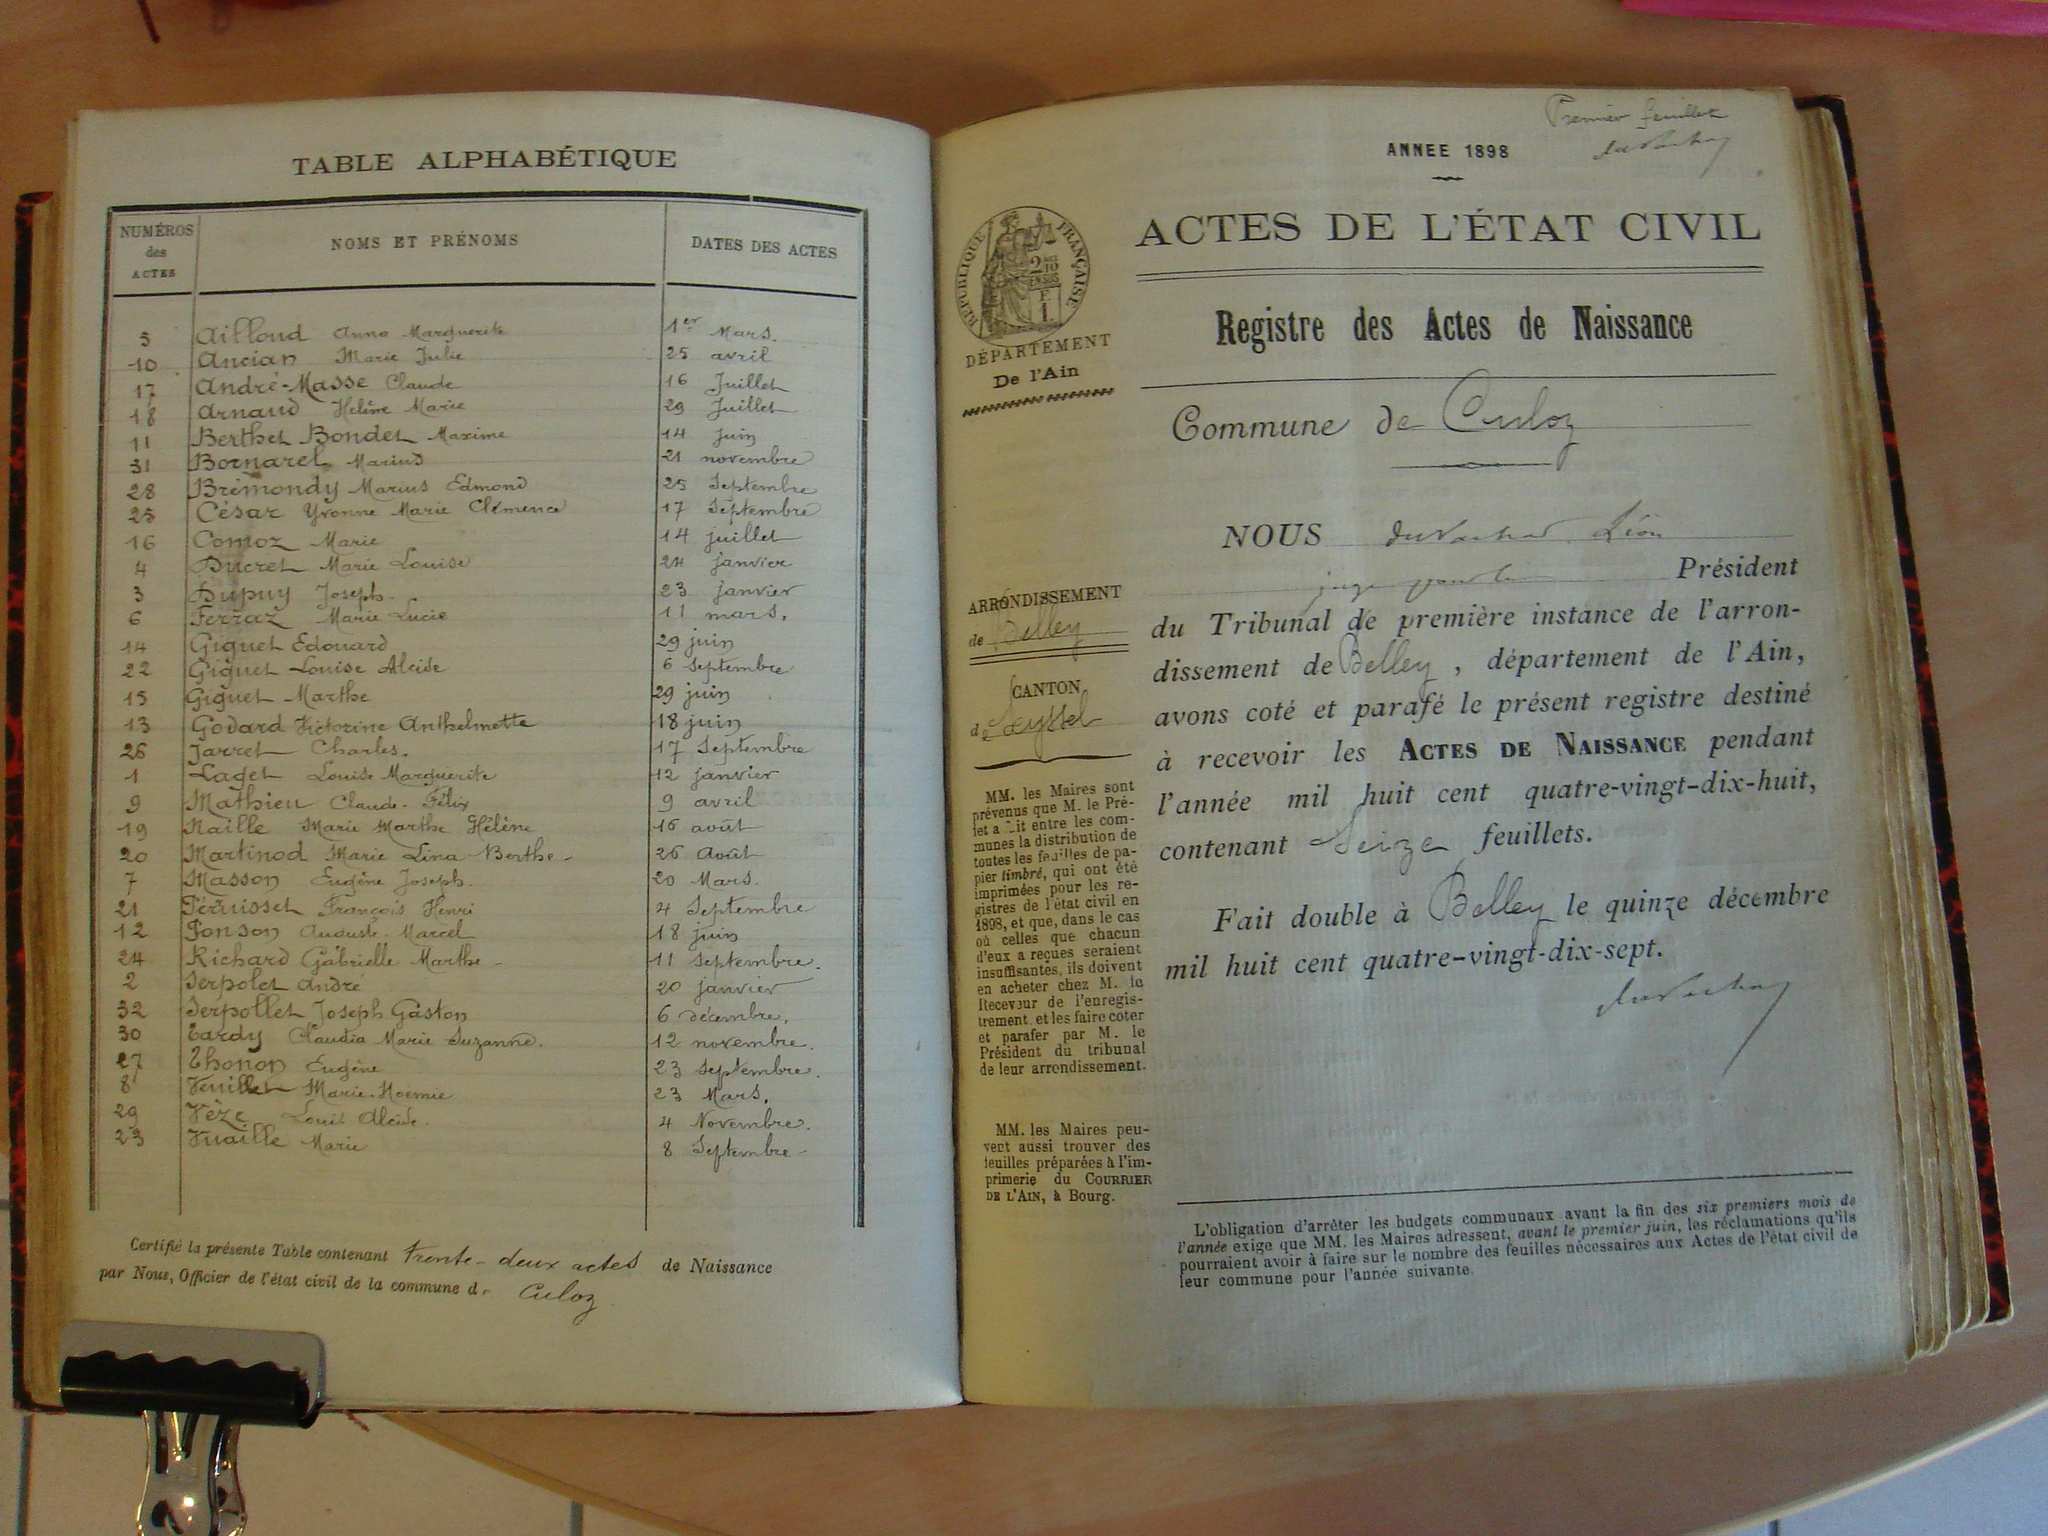 TABLE ALPHABÉTIQUE
NUMÉROS des ACTES NOMS ET PRÉNOMS DATES DES ACTES
5 Ailloud Anna Marguerite 1er Mars.
10 Ancian Marie Julie 25 avril
17 André-Masse Claude 16 Juillet
18 Arnaud Helène Marie 29 Juillet
11 Berthet Bondet Maxime 14 juin
31 Bornarel Marius 21 novembre
28 Brémondy Marius Edmond 25 Septembre
25 César Yvonne Marie Clémence 17 Septembre
16 Comoz Marie 14 juillet
4 Ducret Marie Louise 24 janvier
3 Dupuy Joseph 23 janvier
6 Ferraz Marie Lucie 11 mars.
14 Giguet Edouard 29 juin
22 Giguet Louise Alcise 6 Septembre
15 Giguet Marthe 29 juin
13 Godard Victorine Anthelmette 18 juin
26 Jarret Charles. 17 Septembre
1 Laget Louise Marguerite 12 janvier
9 Mathieu Claude-Félix 9 avril
19 Maille Marie Marthe Hélène 16 août
20 Martinod Marie Lina Berthe 26 Août
7 Masson Eugène Joseph. 20 Mars.
21 Péruisset François Henri 4 Septembre
12 Ponson Auguste-Marcel 18 juin
24 Richard Gabrielle Marthe 11 Septembre.
2 Serpolet André 20 janvier
32 Serpollet Joseph Gaston 6 décembre.
30 Tardy Claudia Marie Suzanne. 12 novembre.
27 Thonon Eugène 23 Septembre.
8 Veuillet Marie-Noémie 23 Mars.
29 Vèze Louis Alcide. 4 Novembre.
23 Vuaille Marie 8 Septembre
Certifié la présente Table contenant trente-deux actes de Naissance
par Nous, Officier de l'état civil de la commune de Culoz
Premier feuillet
ANNEE 1898
ACTES DE L'ÉTAT CIVIL
RÉPUBLIQUE FRANÇAISE
DÉPARTEMENT
De l'Ain
Registre des Actes de Naissance
Commune de Culoz
ARRONDISSEMENT
de Belley
CANTON
de Seyssel
MM. les Maires sont
prévenus que M. le Pré-
fet a fait entre les com-
munes la distribution de
toutes les feuilles de pa-
pier timbré, qui ont été
imprimées pour les re-
gistres de l'état civil en
1898, et que, dans le cas
où celles que chacun
d'eux a reçues seraient
insuffisantes, ils doivent
en acheter chez M. le
Receveur de l'enregis-
trement, et les faire coter
et parafer par M. le
Président du tribunal
de leur arrondissement.
MM. les Maires peu-
vent aussi trouver des
feuilles préparées à l'im-
primerie du COURRIER
DE L'AIN, à Bourg.
NOUS Léon
Président
du Tribunal de première instance de l'arron-
dissement de Belley, département de l'Ain,
avons coté et parafé le présent registre destiné
à recevoir les ACTES DE NAISSANCE pendant
l'année mil huit cent quatre-vingt-dix-huit,
contenant Seize feuillets.
Fait double à Belley le quinze décembre
mil huit cent quatre-vingt-dix-sept.
L'obligation d'arrêter les budgets communaux avant la fin des six premiers mois de
l'année exige que MM. les Maires adressent, avant le premier juin, les réclamations qu'ils
pourraient avoir à faire sur le nombre des feuilles nécessaires aux Actes de l'état civil de
leur commune pour l'année suivante.